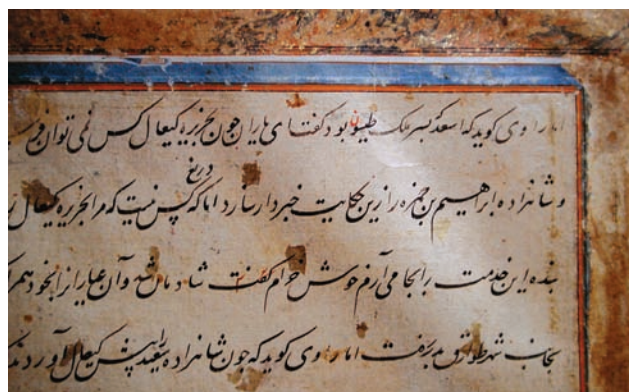 اما راوی کوید که اسعد پسر ملک بود گفت ای یاران چون بجزیره کیعال کس نمی توان
دریغ
و شاهزاده ابراهیم بن حمزه را ازین حکایت خبردار سازد اما که کس نیست که مرا بجزیره کیعال
بنده این خدمت را بجا می آرم خوش خرام گفت شادمان شد و آن عیار را بخود
بجانب شهر بدر رفت اما راوی کوید که چون شاهزاده سعید را پیش کیعال آوردند